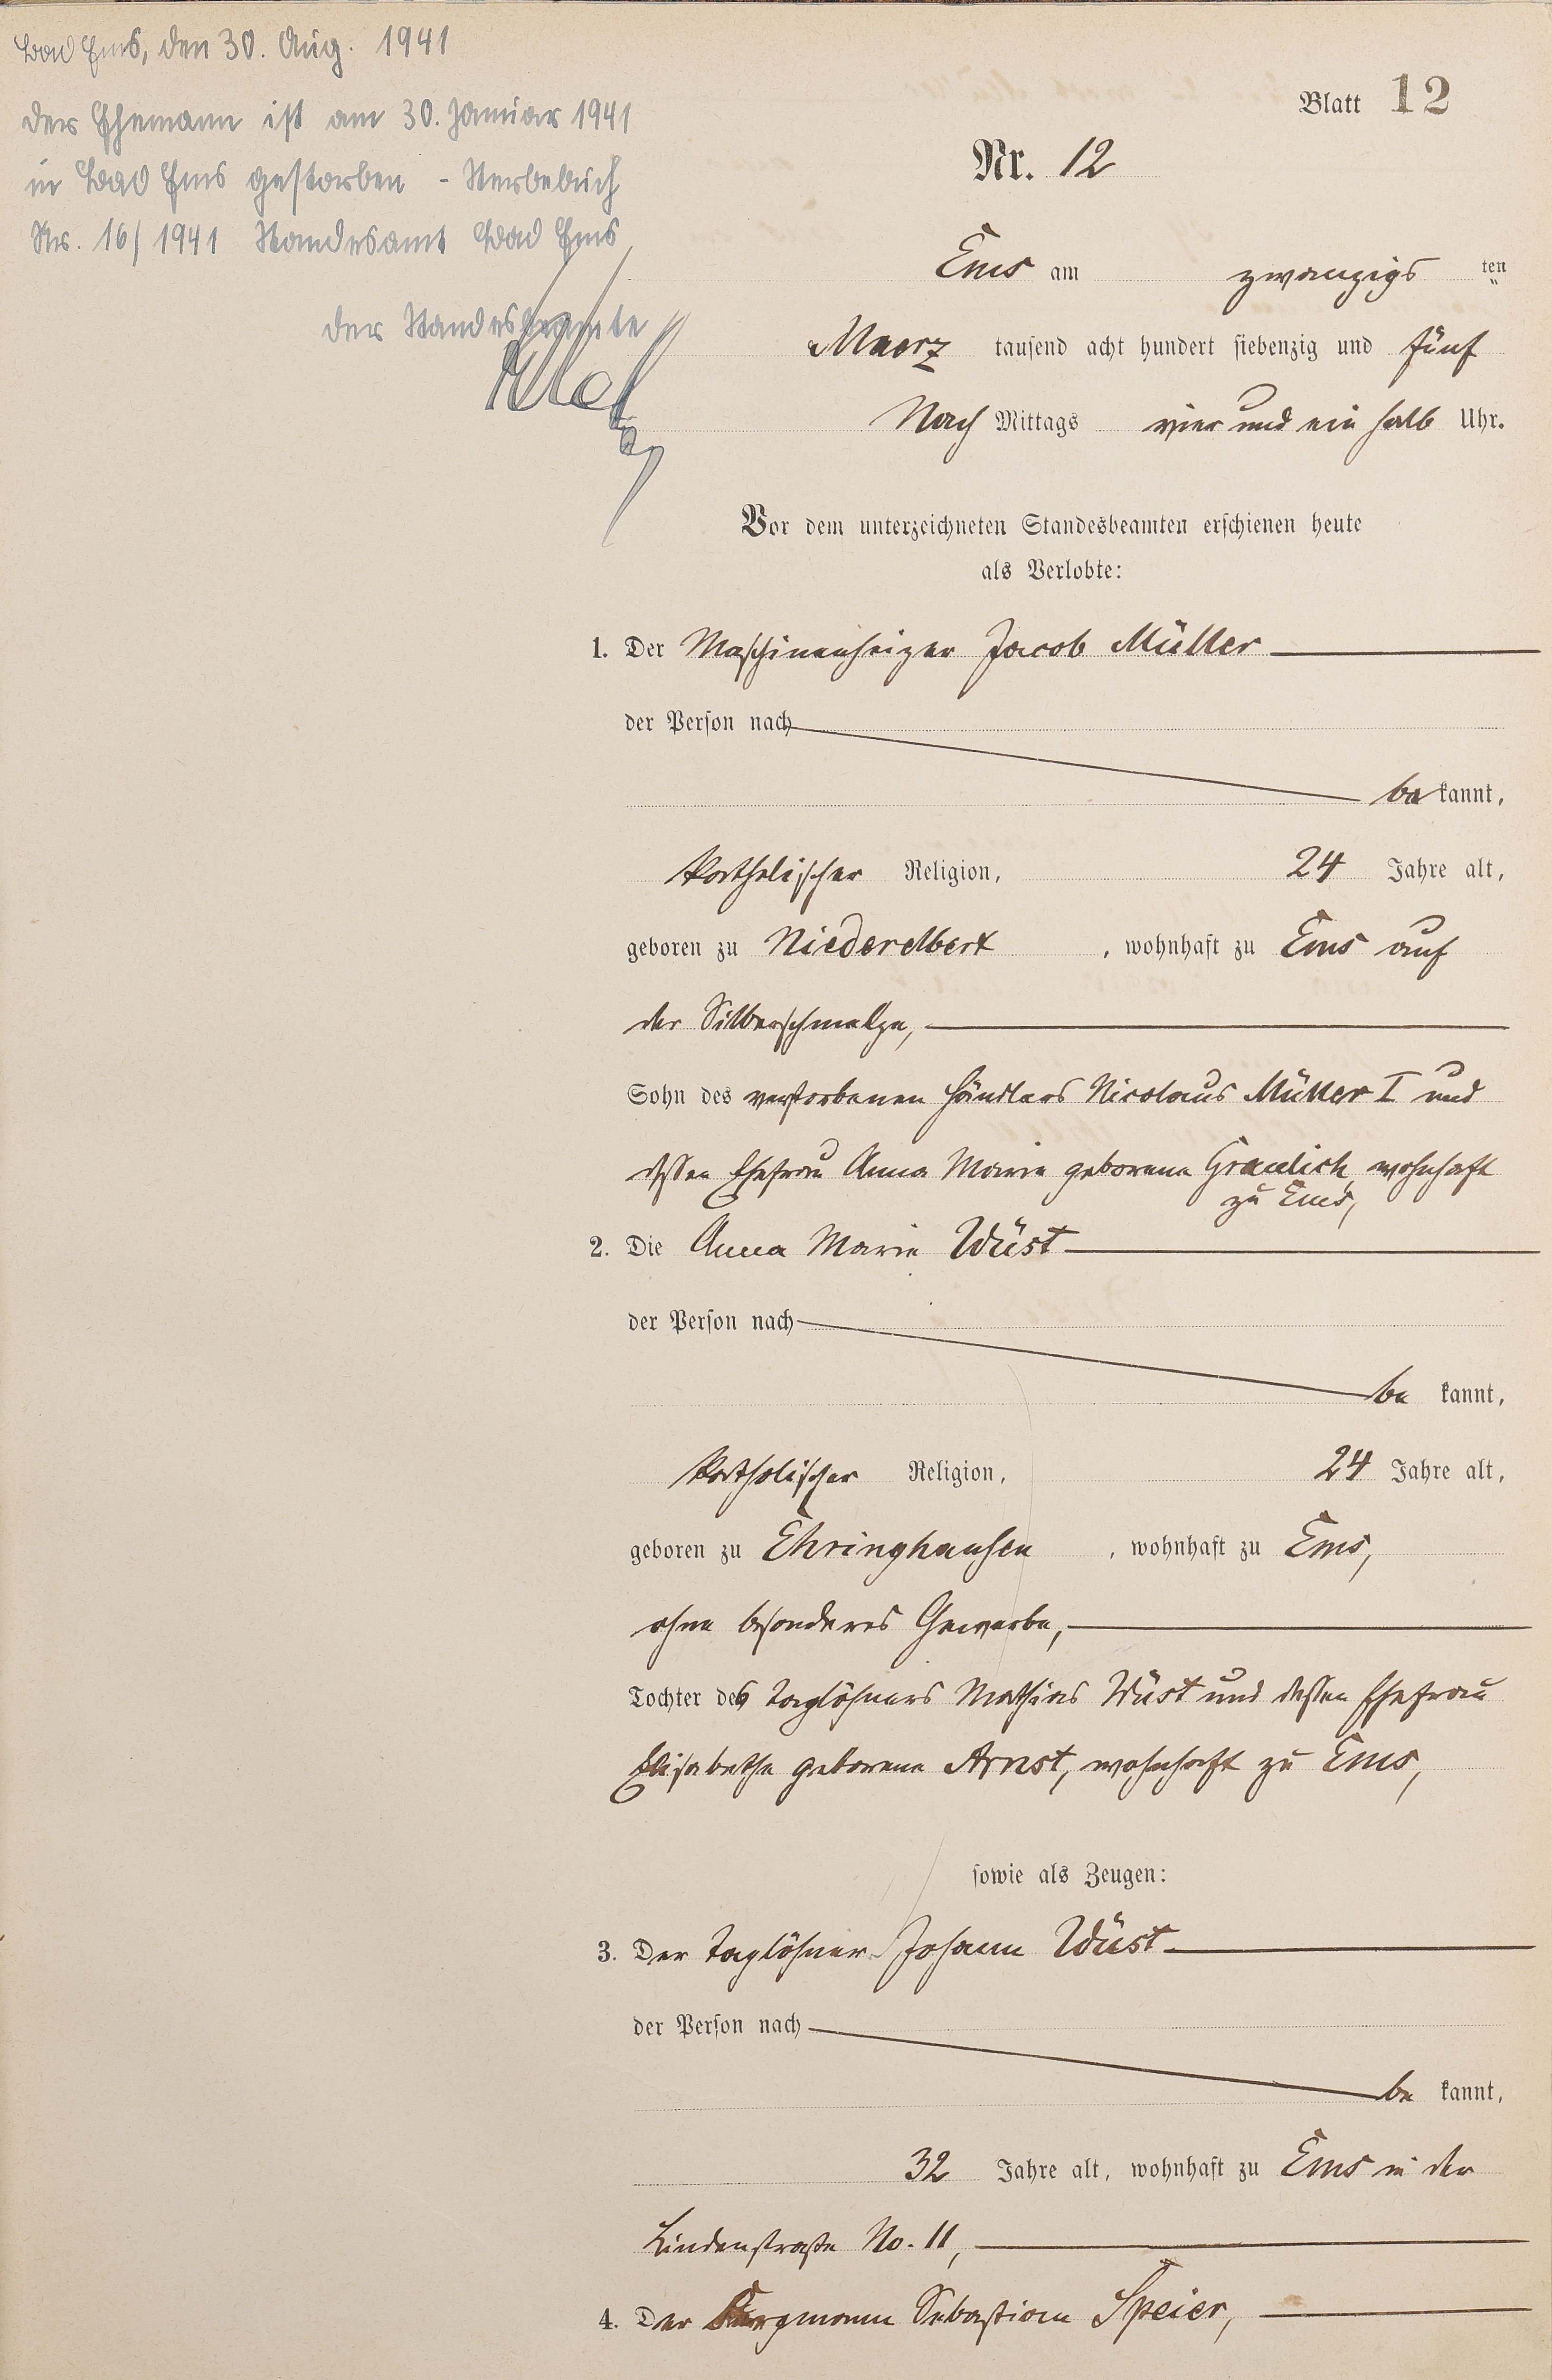 Bad Ems, den 30. Aug. 1941
Der Ehemann ist am 30. Januar 1941
in Bad Ems gestorben - Sterbebuch
Nr. 16/1941 Standesamt Bad Ems
Der Standesbeamte
Blatt 12
Nr. 12
Ems am zwanzigs ten
Maerz tausend acht hundert siebenzig und fünf
Nach Mittags vier und ein halb Uhr.
Vor dem unterzeichneten Standesbeamten erschienen heute
als Verlobte:
1. Der Maschinenheizer Jacob Müller
der Person nach
be kannt,
katholischer Religion, 24 Jahre alt,
geboren zu Niederelbert, wohnhaft zu Ems auf
der Silberschmelze,
Sohn des verstorbenen Händlers Nicolaus Müller I und
dessen Ehefrau Anna Marie geborene Graulich, wohnhaft
zu Ems,
2. Die Anna Marie Wüst
der Person nach
be kannt,
katholischer Religion, 24 Jahre alt,
geboren zu Ehringhausen, wohnhaft zu Ems,
ohne besonderes Gewerbe,
Tochter des Taglöhners Mathias Wüst und dessen Ehefrau
Elisabethe geborene Arnst, wohnhaft zu Ems,
sowie als Zeugen:
3. Der Taglöhner Johann Wüst
der Person nach
be kannt,
32 Jahre alt, wohnhaft zu Ems in der
Lindenstraße No. 11,
4. Der Bergmann Sebastian Speier,